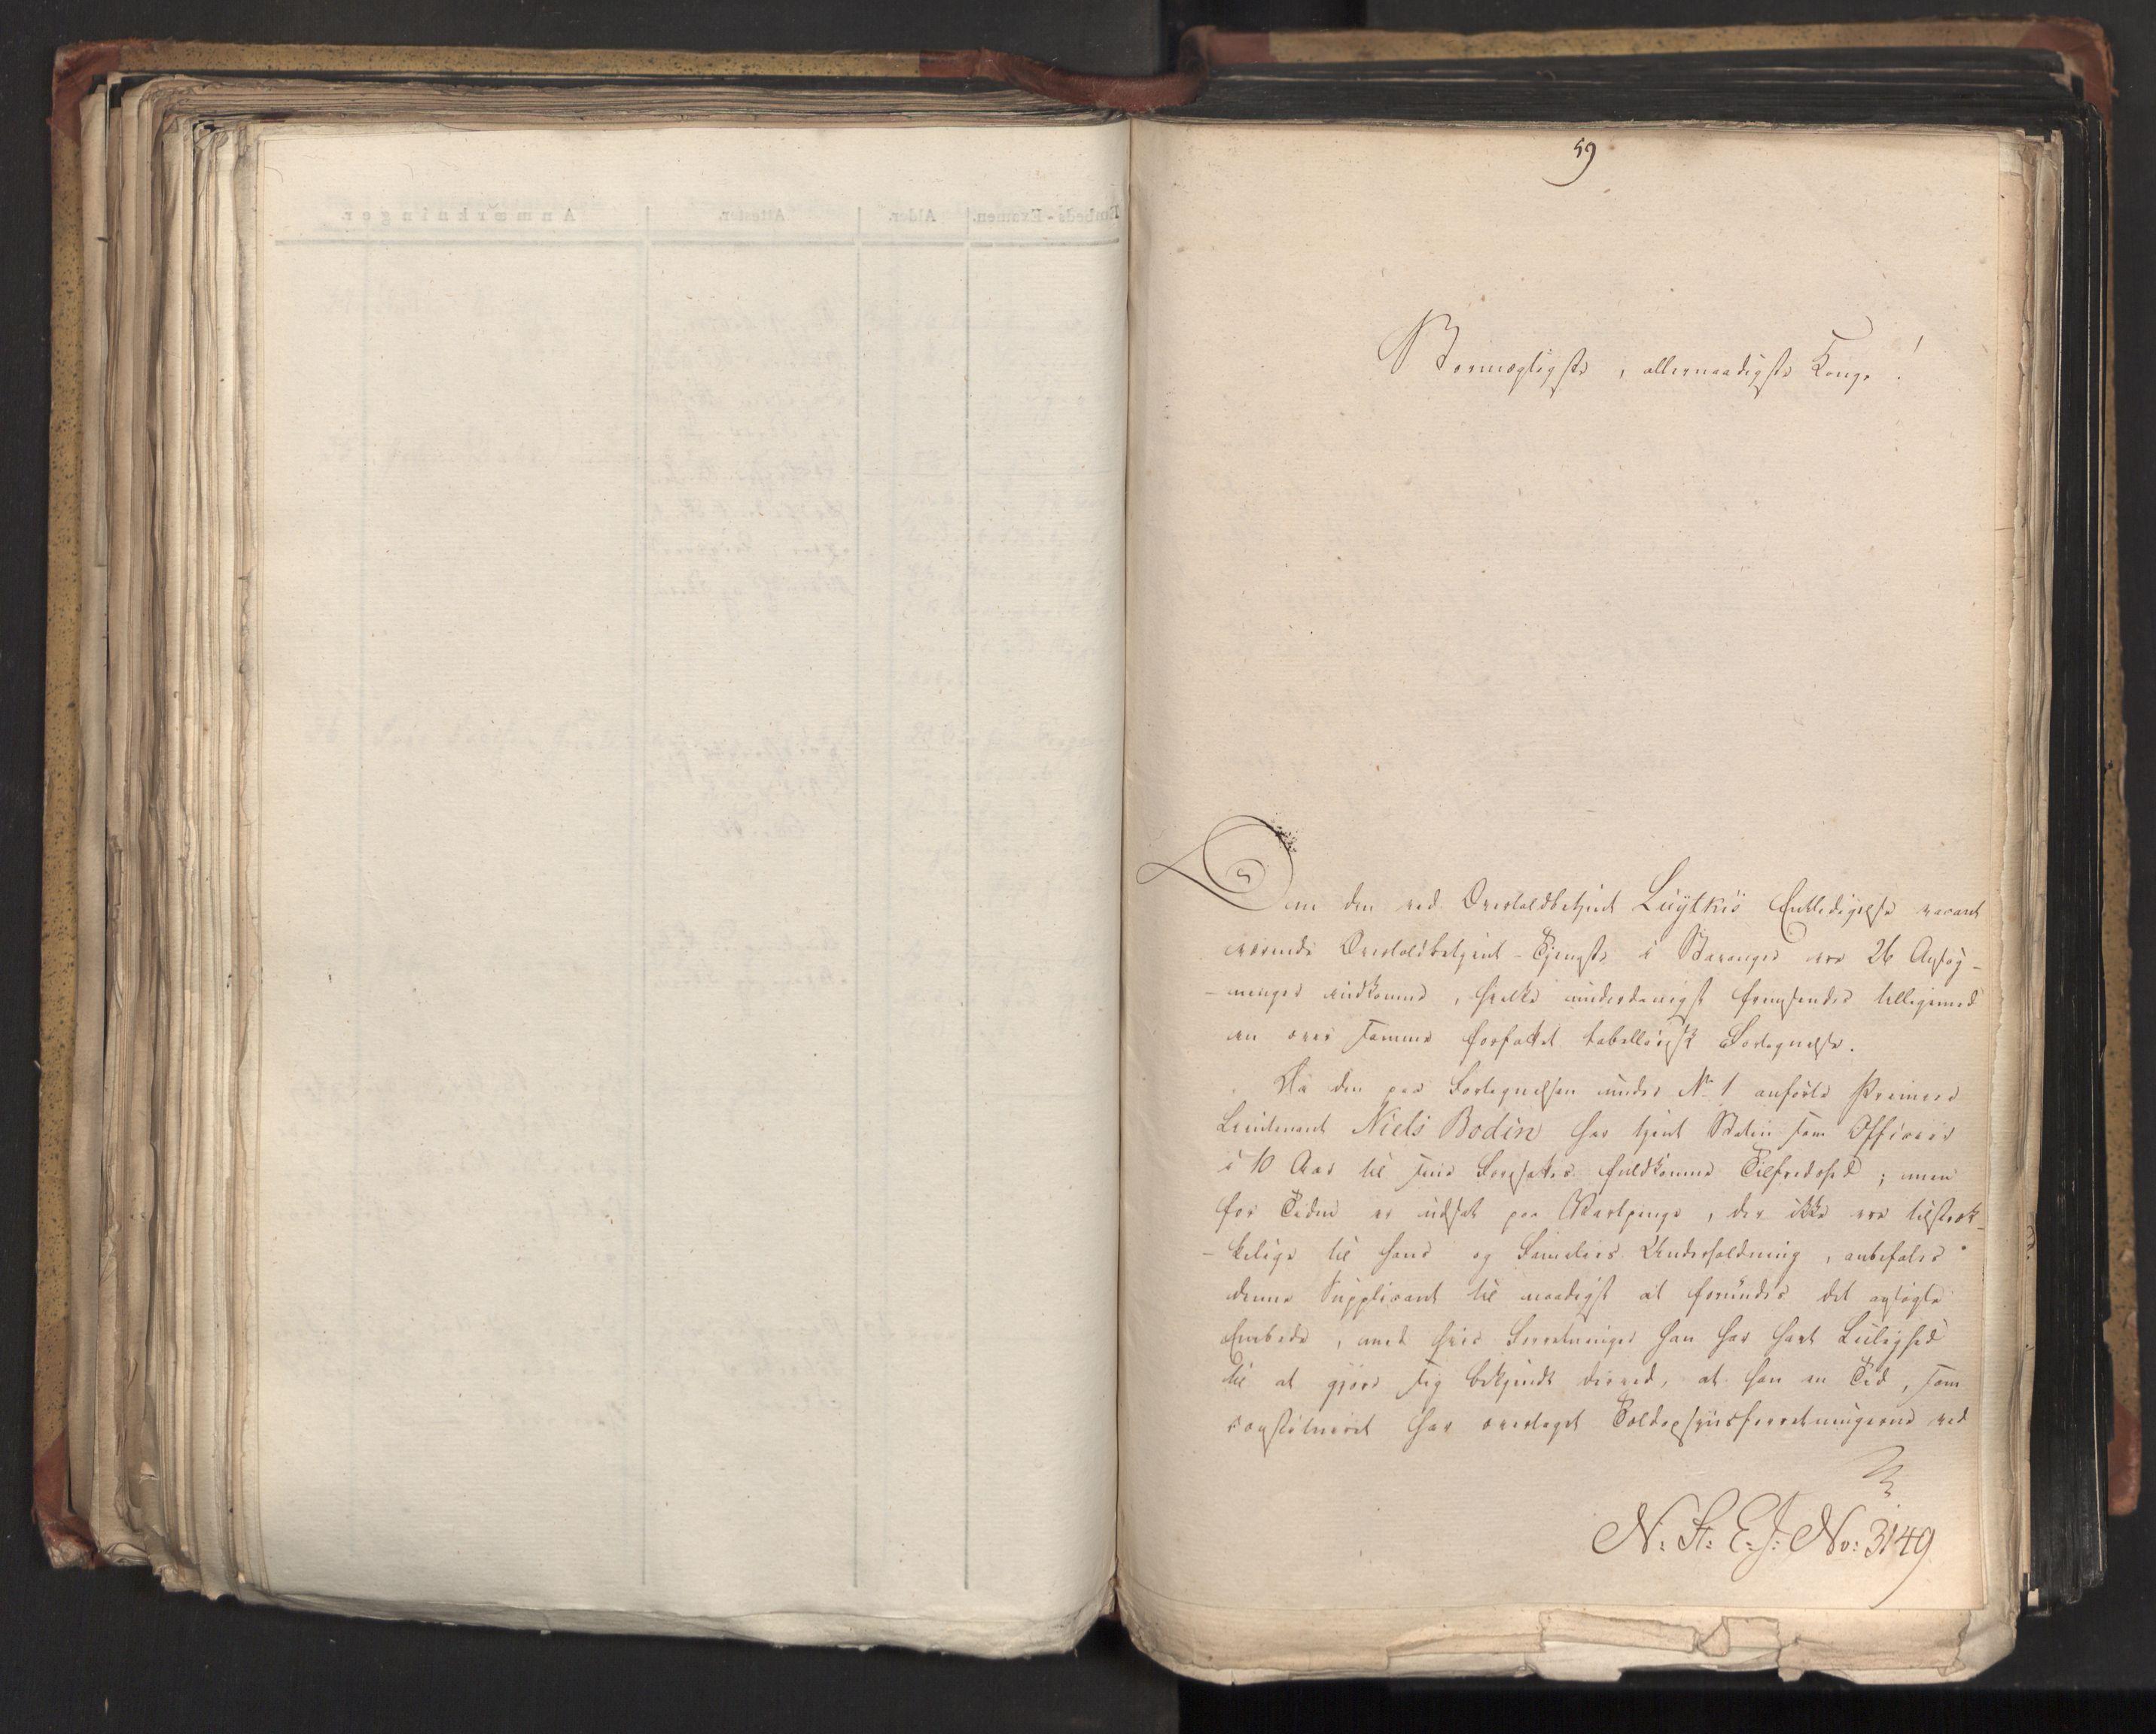 59
Stormægtigste, allernaadigste Konge!
Om den ved Overtoldbetjent Lüÿtkes Entledigelse vacant
værende Overtoldbetjent-Tjeneste i Stavanger ere 26 Ansøg-
-ninger indkomne, hvilke underdanigst fremsendes tilligemed
en over samme forfattet tabellarisk Fortegnelse.
Da den paa Fortegnelsen under No 1 anførte Premier
Lieutenant Niels Bodin har tjent Staten som Officeer
i 10 Aar til sine Foresattes fuldkomne Tilfredshed; men
for Tiden er udsat paa Vartpenge, der ikke ere tilstræk-
-kelige til hans og Families Underholdning, anbefales
denne Supplicant til naadigst at forundes det ansøgte
Embede, med hvis Forretninger han har havt Leilighed
til at gjøre sig bekjendt derved, at han en Tid, som
constitueret har overtaget Toldopsynsforretningerne ved
N: St: E: J: No: 3149
Anmærkninger.
Attester.
Alder.
Embeds-Examen.